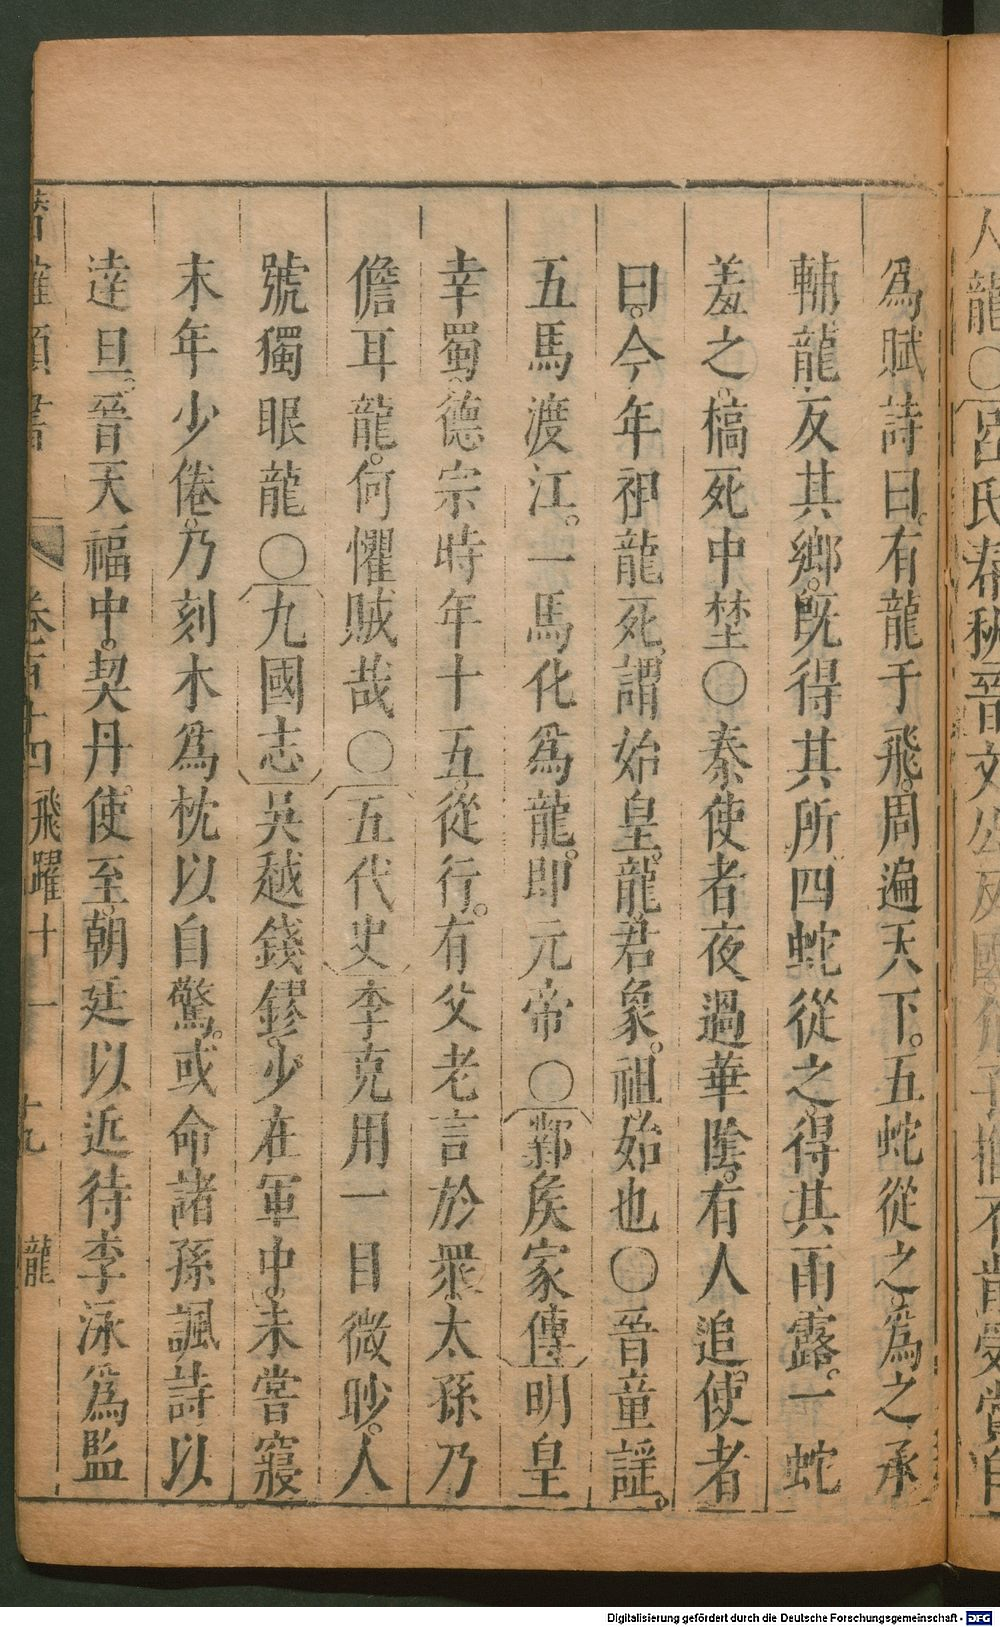 人龍〇呂氏春秋晉文公反國介子推不肯受賞自
爲賦詩曰。有龍于飛。周遍天下。五蛇從之。爲之承
輔。龍反其鄉。旣得其所。四蛇從之。得其雨露。一蛇
羞之。槁死中埜〇秦使者夜過華陰。有人追使者
曰。今年祖龍死。謂始皇。龍君象。祖始也〇晉童謡。
五馬渡江。一馬化爲龍。卽元帝〇鄴矦家傳明皇
幸蜀。德宗時年十五。從行。有父老言於眾。太孫乃
儋耳龍。何懼賊哉〇五代史李克用一目微眇。人
號獨眼龍〇九國志吳越錢鏐。少在軍中。未嘗寢
末年少倦。乃刻木爲枕以自驚。或命諸孫諷詩以
達旦。晉天福中。契丹使至朝廷以近待李泳爲監
潛確類書 卷百十四 飛躍十一 十九 龍
Digitalisierung gefördert durch die Deutsche Forschungsgemeinschaft - DFG